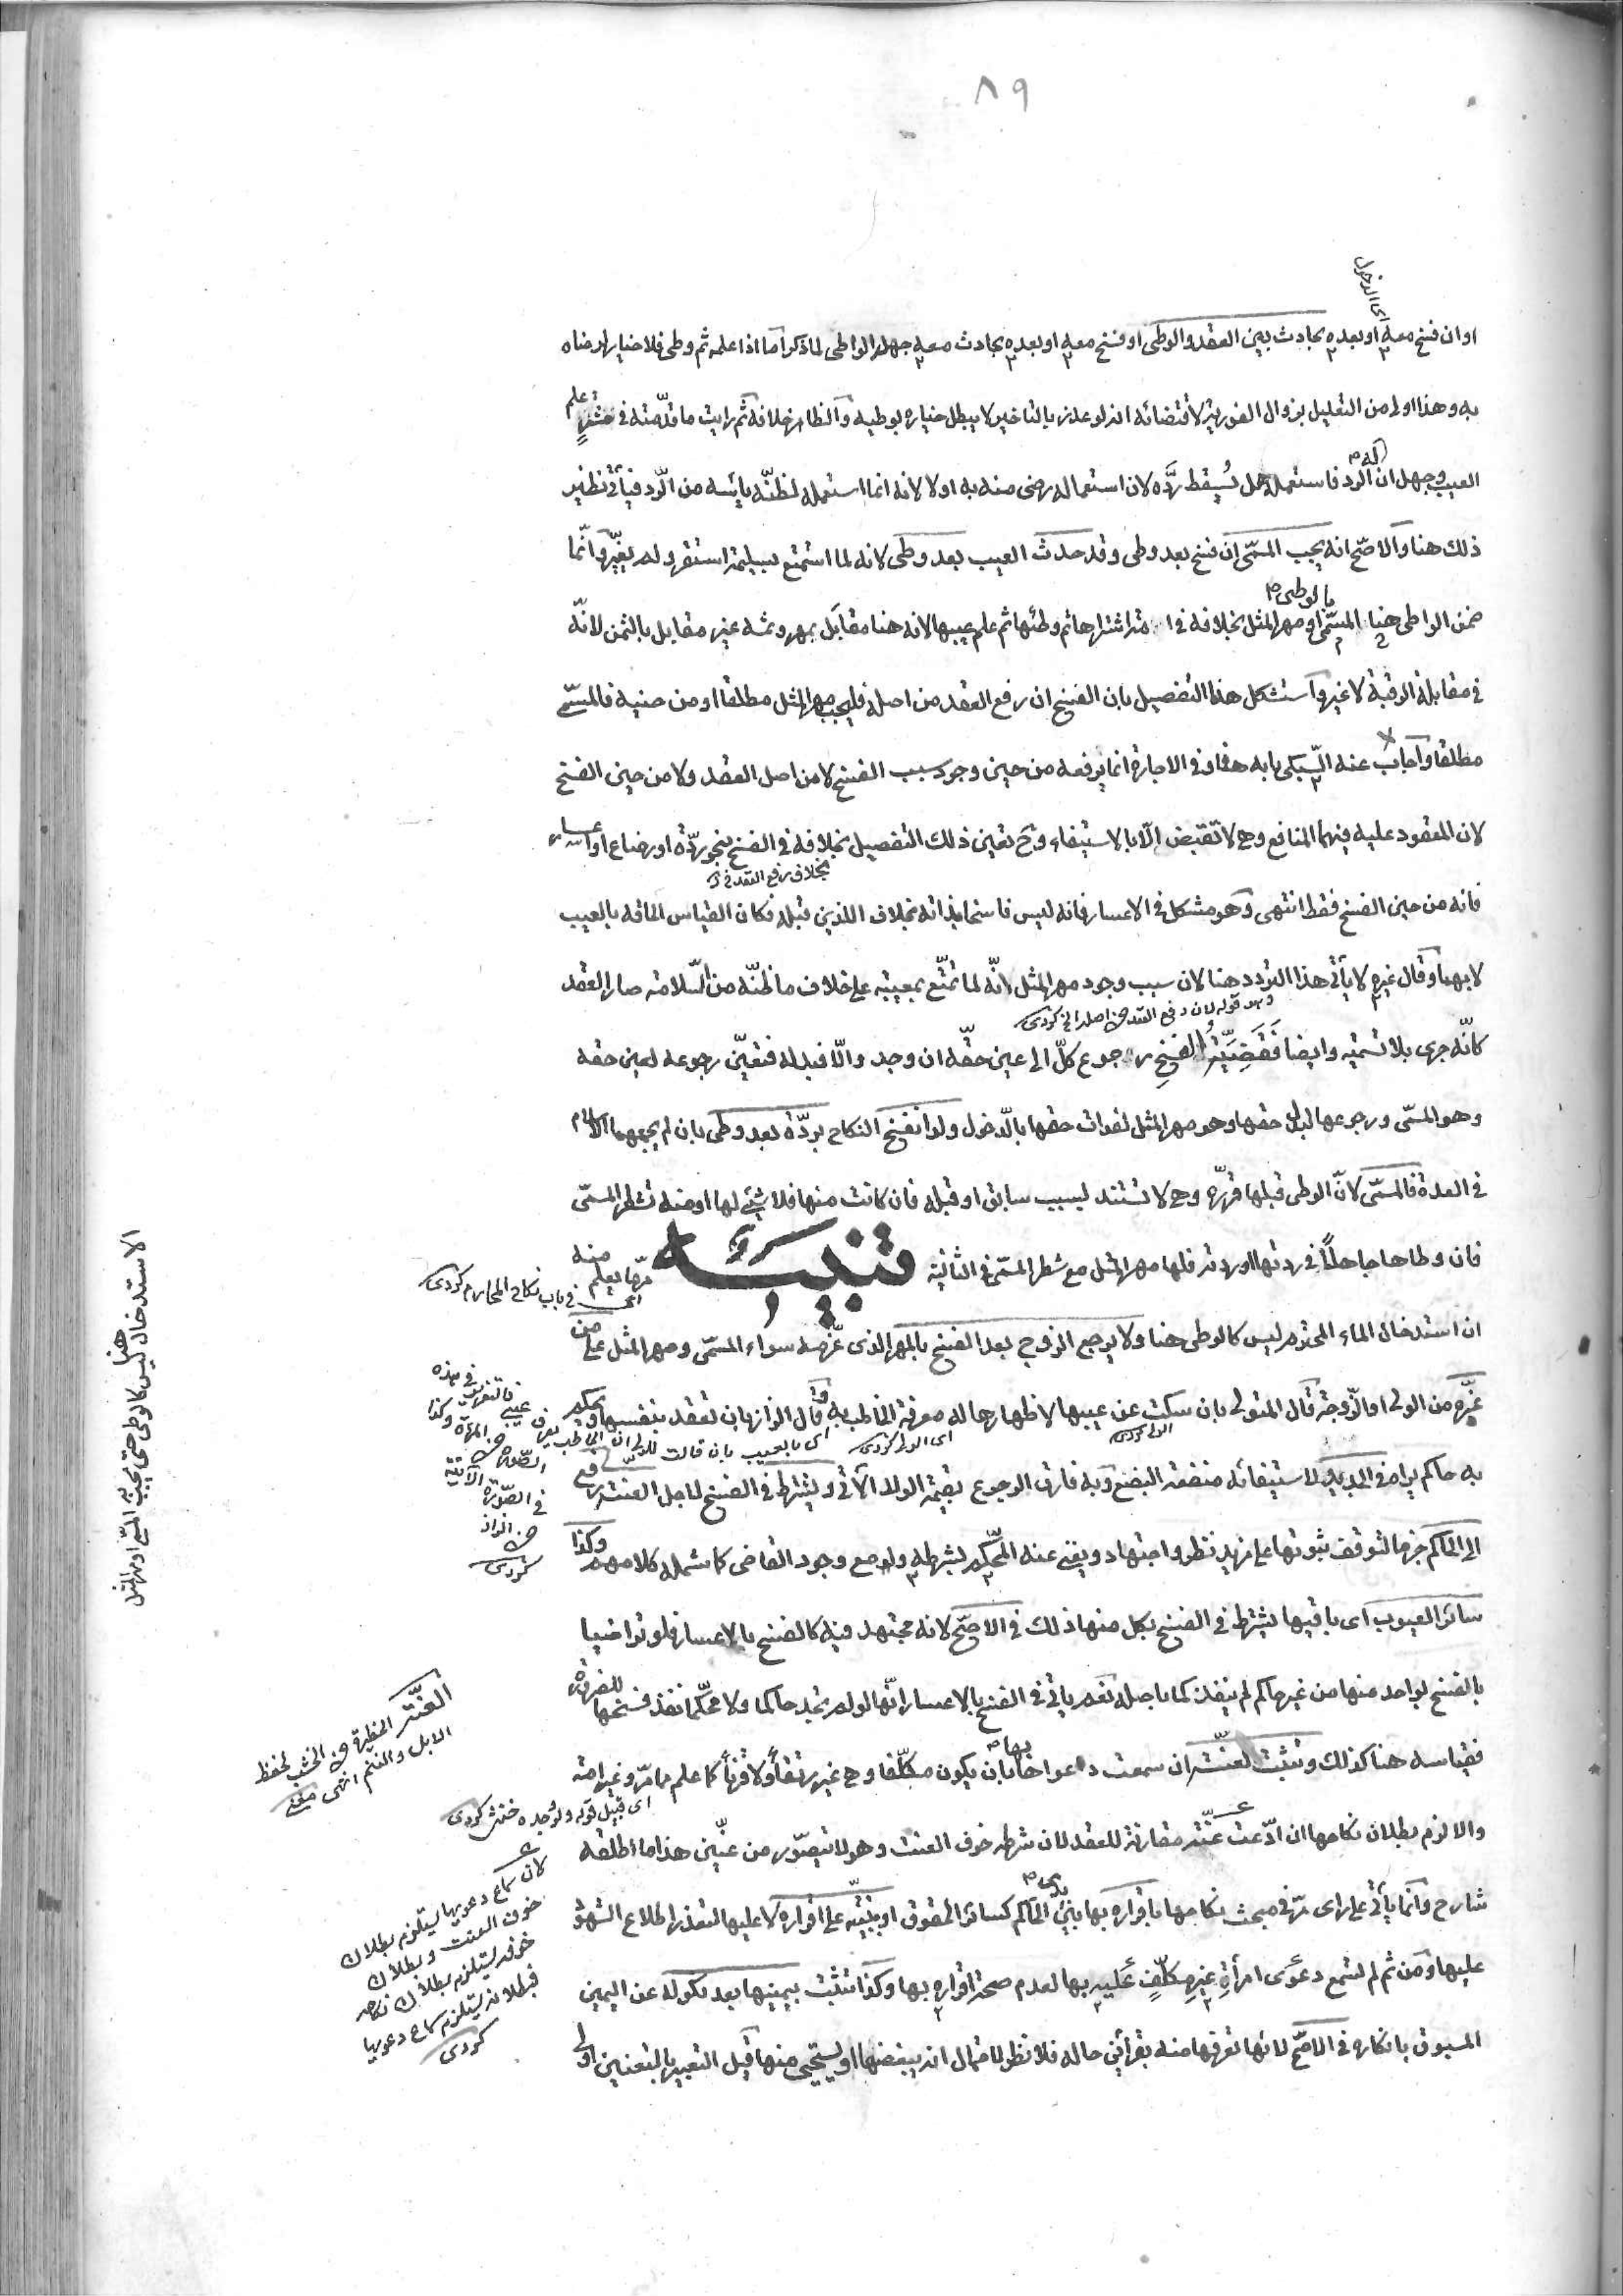 ٨٩
اى الدخول
او ان فسخ معه او بعده بحادث بين العقد والوطى او فسخ معه او بعده بحادث معه جهله الواطى لما ذكر اما اذا علمه ثم وطى فلا خيار لرضاه
به وهذا اولى من التعليل بزوال الفورية لاقتضائه انه لو عذر بالتاخير لا يبطل خياره بوطيه والظاهر خلافه ثم رايت ما قدمته فى مشتر علم
العيب وجهل ان له الرد فاستعمله هل يسقط رده لان استعماله رضى منه به اولا لانه انما استعمله لظنه يائسه من الرد فيأتى نظير
ذلك هنا والاصح انه يجب المسمى ان فسخ بعد وطى وقد حدث العيب بعد وطى لانه لما استمتع بسليمة استقر ولم يغير وانما
ضمن الواطى هنا بالوطى المسمى او مهر المثل بخلافه فى امة اشتراها ثم وطئها ثم علم عيبها لانه هنا مقابل بمهر وثمه غير مقابل بالثمن لانه
فى مقابلة الرقبة لا غير واستشكل هذا التفصيل بان الفسخ ان رفع العقد من اصله فليجب مهر المثل مطلقا او من حينه فالمسمى
مطلقا واجاب عنه السبكى بانه هنا وفى الاجارة انما يرفعه من حين وجود سبب الفسخ لا من اصل العقد ولا من حين الفسخ
لان المعقود عليه فيهما المنافع وهى لا تقبض الا بالاستيفاء وح تعين ذلك التفصيل بخلافه فى الفسخ بنحو ردة او رضاع او اعسار
بخلاف رفع العقد فى
فانه من حين الفسخ فقط انتهى وهو مشكل فى الاعسار فانه ليس فاسخا بذاته بخلاف اللذين قبله فكان القياس الحاقه بالعيب
لا بهما وقال غيره لا يأتى هذا التردد هنا لان سبب وجود مهر المثل انه لما تمتع بمعيبة على خلاف ما ظنه من السلامة صار العقد
قوله لان رفع العقد من اصله الخ كردى
كانه جرى بلا تسمية وايضا فقضية الفسخ رجوع كل الى عين حقه ان وجد والا فبدله فتعين رجوعه لعين حقه
وهو المسمى ورجوعها لبدل حقها وهو مهر المثل لفوات حقها بالدخول ولو انفسخ النكاح بردة بعد وطى بان لم يجمعهما الاسلام
فى العدة فالمسمى لان الوطى قبلها قرره وهى لا تستند لسبب سابق او قبله فان كانت منها فلا شئ لها او منه تشطر المسمى
فان وطئها جاهلا فى ردتها او ردته فلها مهر المثل مع شطر المسمى فى الثانية تنبيه مر ما يعلم منه
اى فى باب نكاح المحارم كردى
ان استدخال الماء المحترم ليس كالوطى هنا ولا يرجع الزوج بعد الفسخ بالمهر الذى غرمه سواء المسمى ومهر المثل على من
غره من الولى او الزوجة قال المتولى بان سكت عن عيبها لاظهارها له معرفة الخاطب به وقال الزاز بان تعقد بنفسها ويحكم
الولى كردى
اى الولى كردى
اى بالعيب بان قالت للولى ان الخاطب يعرف عيبى
به حاكم يراه فى الجديد لاستيفائه منفعة البضع وبه فارق الرجوع بقيمة الولد الآتى ويشترط فى الفسخ لاجل العنة رفع
الى الحاكم جزما لتوقف ثبوتها على مزيد نظر واجتهاد ويغنى عنه المحكم بشرطه ولو مع وجود القاضى كما شمله كلامهم وكذا
سائر العيوب اى باقيها يشترط فى الفسخ بكل منها ذلك فى الاصح لانه مجتهد فيه كالفسخ بالاعسار فلو تراضيا
بالفسخ بواحد منها من غير حاكم لم ينفذ كما باصله نعم يأتى فى الفسخ بالاعسار انها لو لم تجد حاكما ولا محكما نفذ فسخها للضرورة
فقياسه هنا كذلك وتثبت العنة ان سمعت دعواها بها بان يكون مكلفا وهى غير رتقاء ولا قرناء كما علم مما مر وغير امة
اى قبيل قوله ولو وجده خنثى كردى
والا لزم بطلان نكاحها ان ادعت عنة مقارنة للعقد لان شرطه خوف العنت وهو لا يتصور من عنين هذا ما اطلقه
شارح وانما يأتى على راى مر فى مبحث نكاحها باقراره بها بين يدى الحاكم كسائر الحقوق او ببينة على اقراره لا عليها لتعذر اطلاع الشهود
عليها ومن ثم لم تسمع دعوى امرأة غير مكلف عليه بها لعدم صحة اقراره بها وكذا تثبت بيمينها بعد نكوله عن اليمين
المسبوق بانكاره فى الاصح لانها تعرفها منه بقرائن حاله فلا نظر لاحتمال انه يبغضها او يستحيى منها قيل التعبير بالتعنين اولى
فالتغرير فى هذه
الصورة من المرأة وكذا
فى الصورة الآتية
عن الزاز
كردى
العنة الحظيرة من الخشب لحفظ
الابل والغنم انتهى
لان سماع دعويها يستلزم بطلان
خوف العنت وبطلان
خوفه يستلزم بطلان نكاحه
فبطلانه يستلزم سماع دعويها
كردى
الاستدخال ليس كالوطى حتى يجب به المسمى او مهر المثل
هنا